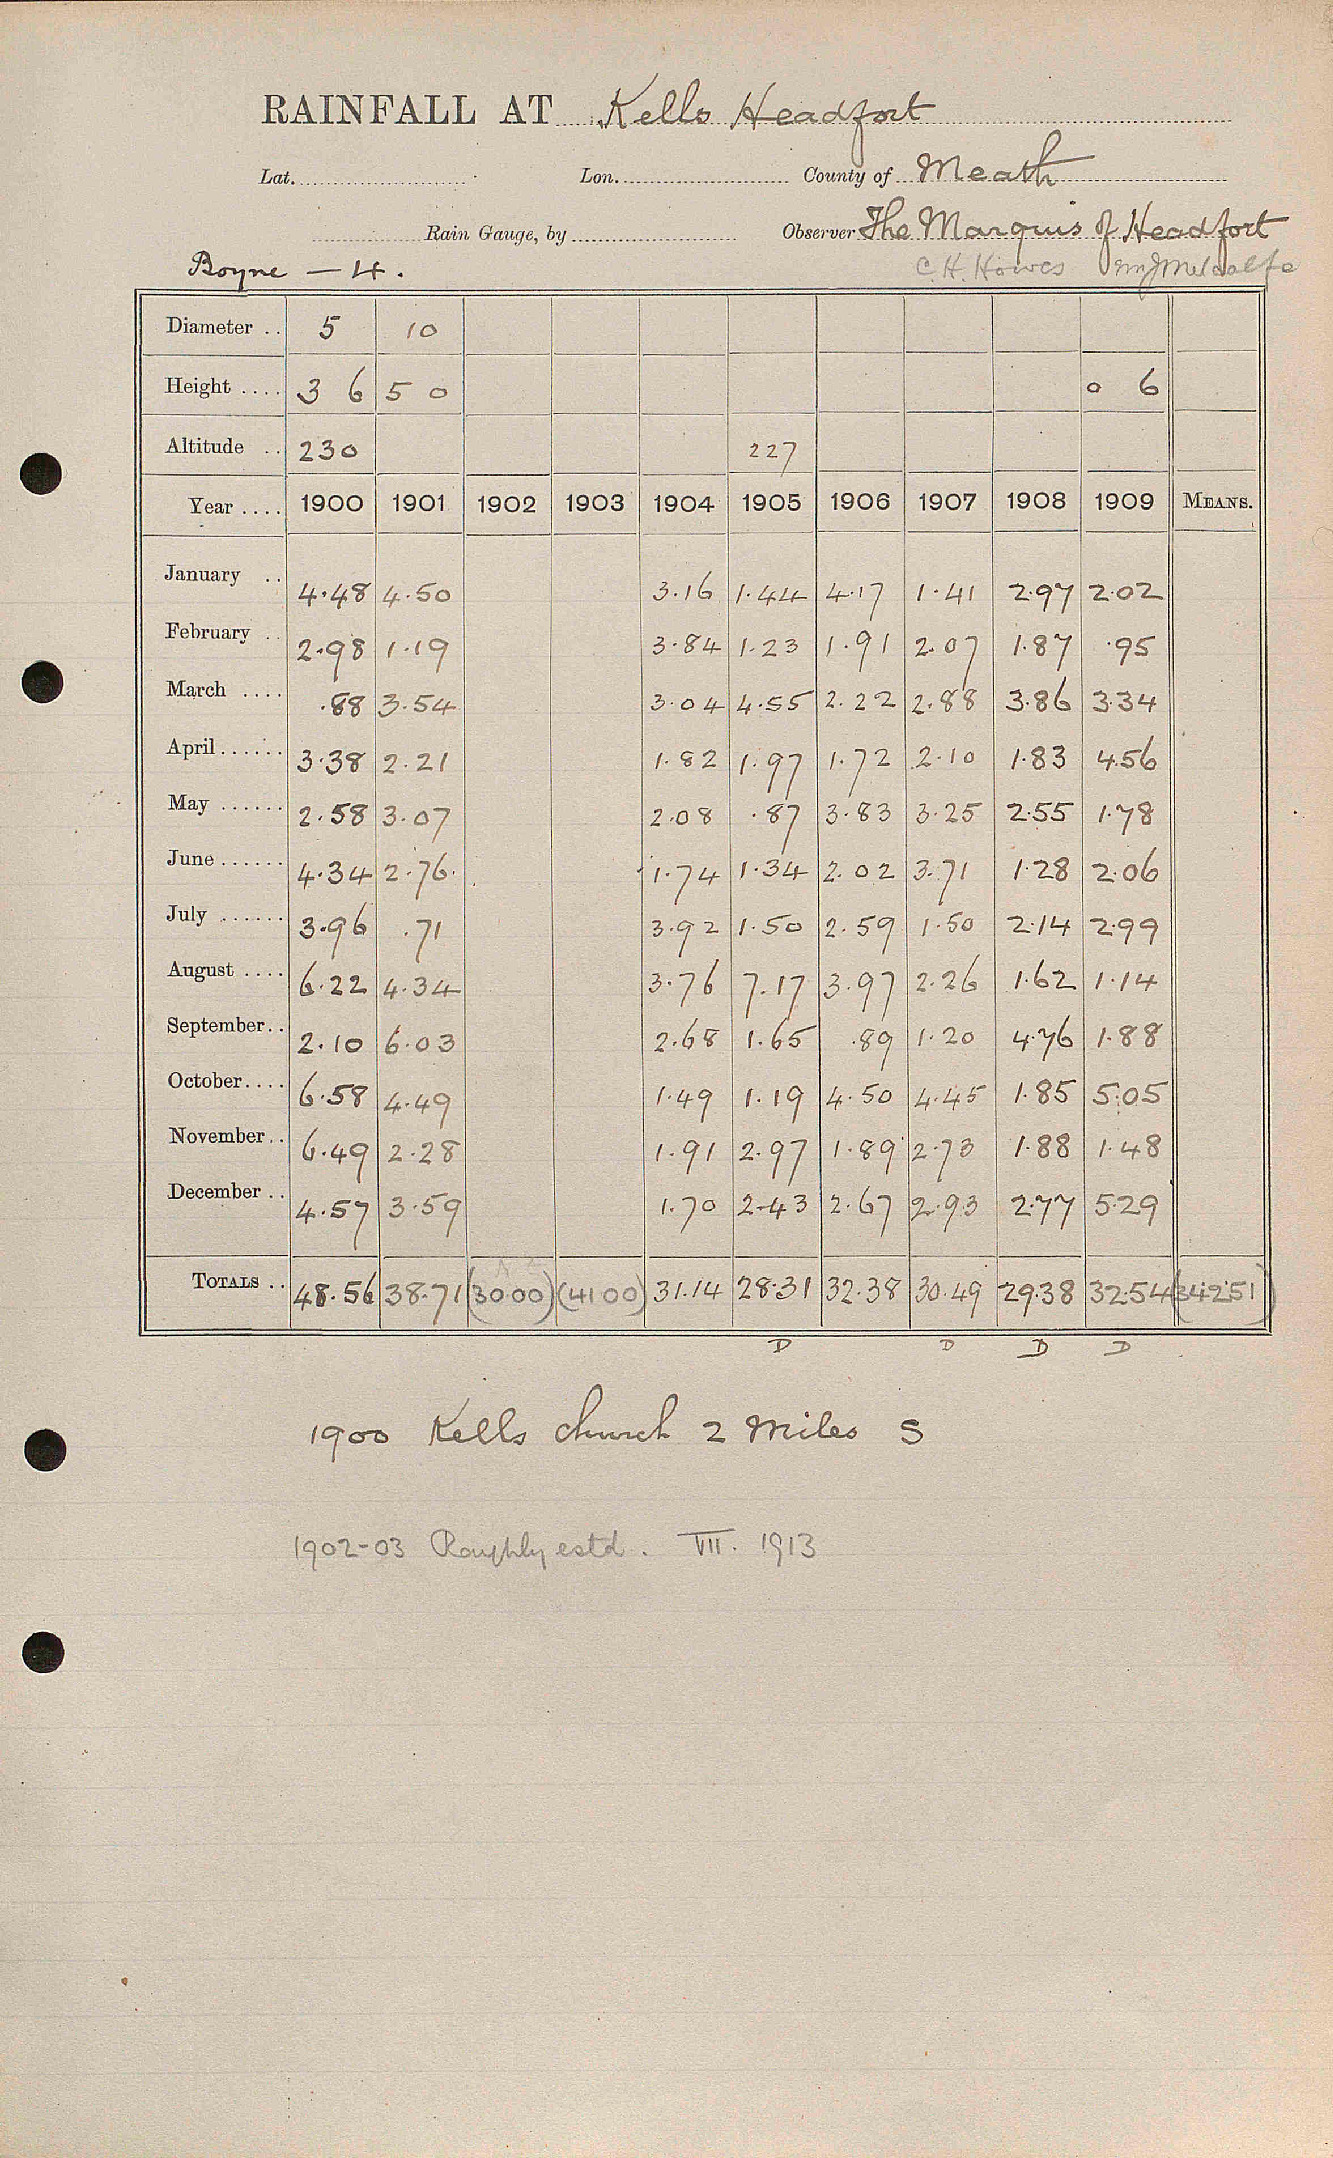 RAINFALL AT Kells Headfort
Lat. Lon. County of Meath
Rain Gauge, by Observer The Marquis of Headfort
Boyne – 4. C. H. Howes Wm J Metcalfe
Diameter .. 5 10
Height .... 3 6 5 0 0 6
Altitude .. 230 227
Year .... 1900 1901 1902 1903 1904 1905 1906 1907 1908 1909 MEANS.
January .. 4.48 4.50 3.16 1.44 4.17 1.41 2.97 2.02
February .. 2.98 1.19 3.84 1.23 1.91 2.07 1.87 .95
March .... .88 3.54 3.04 4.55 2.22 2.88 3.86 3.34
April ...... 3.38 2.21 1.82 1.97 1.72 2.10 1.83 4.56
May ...... 2.58 3.07 2.08 .87 3.83 3.25 2.55 1.78
June ...... 4.34 2.76 1.74 1.34 2.02 3.71 1.28 2.06
July ...... 3.96 .71 3.92 1.50 2.59 1.50 2.14 2.99
August .... 6.22 4.34 3.76 7.17 3.97 2.26 1.62 1.14
September.. 2.10 6.03 2.68 1.65 .89 1.20 4.76 1.88
October.... 6.58 4.49 1.49 1.19 4.50 4.45 1.85 5.05
November.. 6.49 2.28 1.91 2.97 1.89 2.73 1.88 1.48
December .. 4.57 3.59 1.70 2.43 2.67 2.93 2.77 5.29
TOTALS .. 48.56 38.71 (30 00) (41 00) 31.14 28.31 32.38 30.49 29.38 32.54 (342.51)
D D D D
1900 Kells church 2 Miles S
1902-03 Roughly estd. VII. 1913